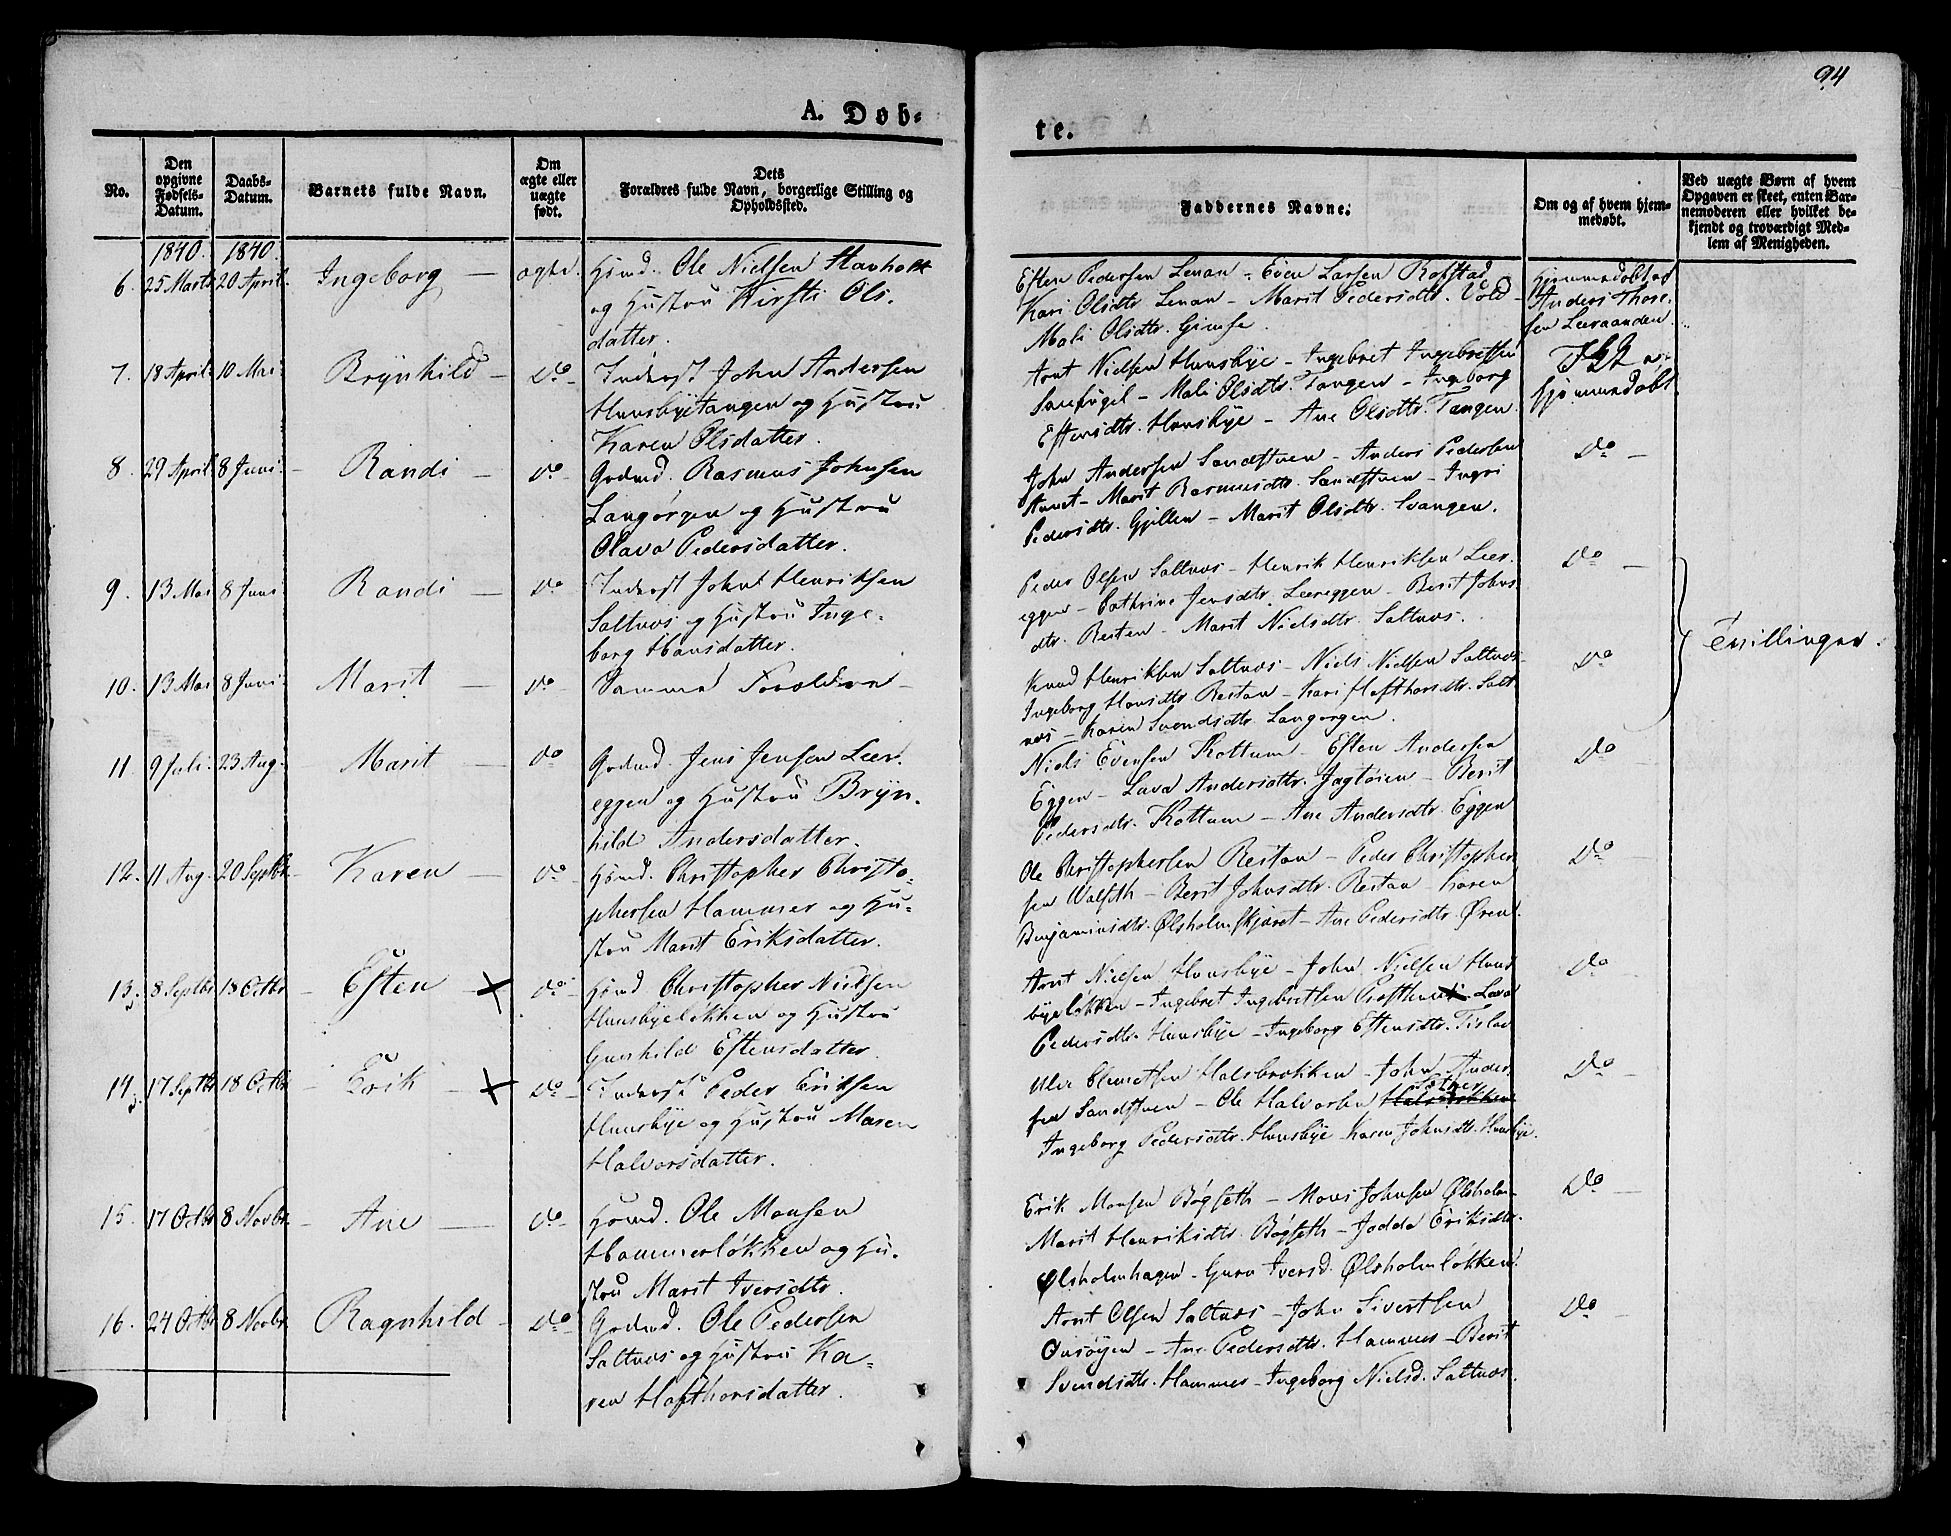 94
A. Døb-
te.
No.
Den opgivne Fødsels-Datum.
Daabs-Datum.
Barnets fulde Navn.
Om ægte eller uægte født.
Dets Forældres fulde Navn, borgerlige Stilling og Opholdssted.
Faddernes Navne.
Om og af hvem hjem-medøbt.
Ved uægte Børn af hvem
Opgaven er skeet, enten Bar-
nemoderen eller hvilket be-
kjendt og troværdigt Med-
lem af Menigheden.
1840. 1840.
6. 25 Marts 20 April. Ingeborg — ægte. Huusmd. Ole Nielsen Stavholt
og Hustru Kirsti Ols-
datter.
Esten Pedersen Lenan - Even Larsen Rofstad
Kari Olsdtr. Lenan - Marit Pedersdtr. Vold -
Mali Olsdtr. Gimse.
Hjemmedøbt af
Anders Thore-
sen Leeraanden.
7. 18 April. 10 Mai. Brynhild - do - Inderst John Andersen
Hunsbyetangen og Hustru
Karen Olsdatter.
Arnt Nielsen Hunsbye - Ingebret Ingebretsen
Sorefugel - Mali Olsdtr. Tangen - Ingeborg
Estensdtr. Hunsbye - Ane Olsdtr. Tangen.
Ikke
hjemmedøbt
8. 29 April. 8 Juni. - Randi - do - Gaardmd. Rasmus Johnsen
Langørgen og Hustru
Olava Pedersdatter.
John Andersen Sandstuen - Anders Pedersen
- Marit Rasmusdtr. Sandstuen - Ingri
Pedersdtr. Gjellen - Marit Olsdtr. Svangen.
Do -
9. 13 Mai 8 Juni Randi - do Inderst John Henriksen
Saltnæs og Hustru Inge-
borg Hansdatter.
Peder Olsen Saltnæs - Henrik Henriksen Leer-
eggen - Cathrine Jensdtr. Leereggen - Berit Johns-
dtr. Resten - Marit Nielsdtr. Saltnæs.
Do -
Tvillinger.
10. 13 Mai 8 Juni Marit - do - Samme Forældre -
Knud Henriksen Saltnæs - Niels Nielsen Saltnæs
Ingeborg Hansdtr. Restan - Kari Hafthorsdtr. Salt-
næs - Karen Svendsdtr. Langørgen.
Do
11. 9 Juli. 23 Aug. Marit - do Gaardmd. Jens Jensen Leer-
eggen og Hustru Bryn-
hild Andersdatter.
Niels Evensen Kottum - Esten Andersen
Eggen - Lava Andersdtr. Jagtøien - Berit
Pedersdtr. Kottum - Ane Andersdtr. Eggen
Do
12. 11 Aug. 20 Septbr. - Karen - do - Huusmd. Christopher Christo-
phersen Hammer og Hu-
stru Marit Eriksdatter.
Ole Christophersen Restan - Peder Christopher-
sen Valseth - Berit Johnsdtr. Restan - Karen
Benjaminsdtr. Ølsholmskjæret - Ane Pedersdtr. Øren.
Do -
13. 8 Septbr. 18 Octbr. - Esten - X do - Huusmd Christopher Nielsen
Hunsbyeløkken og Hustru
Gunhild Estensdatter.
Arnt Nielsen Hunsbye - John Nielsen Huns-
byeløkken - Ingebret Ingebretsen - Lava
Pedersdtr. Hunsbye - Ingeborg Estensdtr.
Do
14. 17 Septbr 18 Octbr - Erik - X do - Inderst Peder Eriksen
Hunsbye og Hustru Maren
Halvorsdatter.
Clemetsen Halsbrekken - John Ander-
sen Sandstuen - Ole Halvorsen
Ingeborg Pedersdtr. Hunsbye - Karen Johnsdtr. Hunsbye.
Do -
15. 17 Octbr 8 Novbr. - Ane - do - Huusmd. Ole Monsen
Hammerløkken og Hu-
stru Marit Iversdtr.
Erik Monsen Bøgseth - Mons Johnsen Ølsholm -
Marit Henriksdtr. Bøgseth - Jodda Eriksdtr.
Ølsholmhagen - Guru Iversd. Ølsholmløkken.
Do -
16. 24 Octbr 8 Novbr. Ragnhild - do - Gaardmd. Ole Pedersen
Saltnæs og Hustru Ka-
ren Hafthorsdatter.
Arnt Olsen Saltnæs - John Sivertsen
Onsøyen - Ane Pedersdtr. Hammer - Berit
Svendsdtr. Hammer - Ingeborg Nielsd. Saltnæs.
Do -